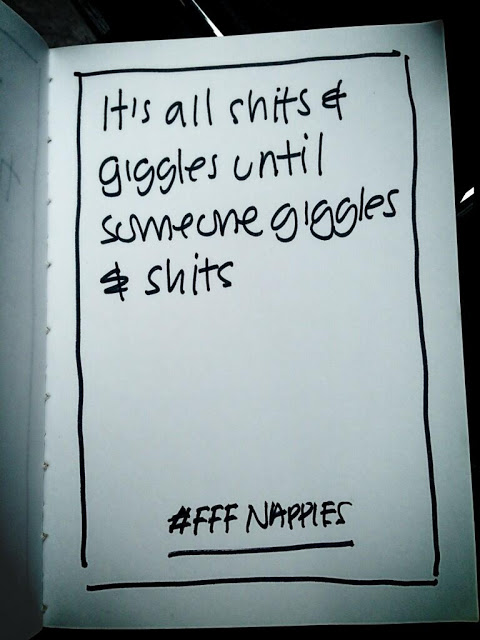 It's all shits &
giggles until
someone giggles
& shits
#FFF NAPPIES